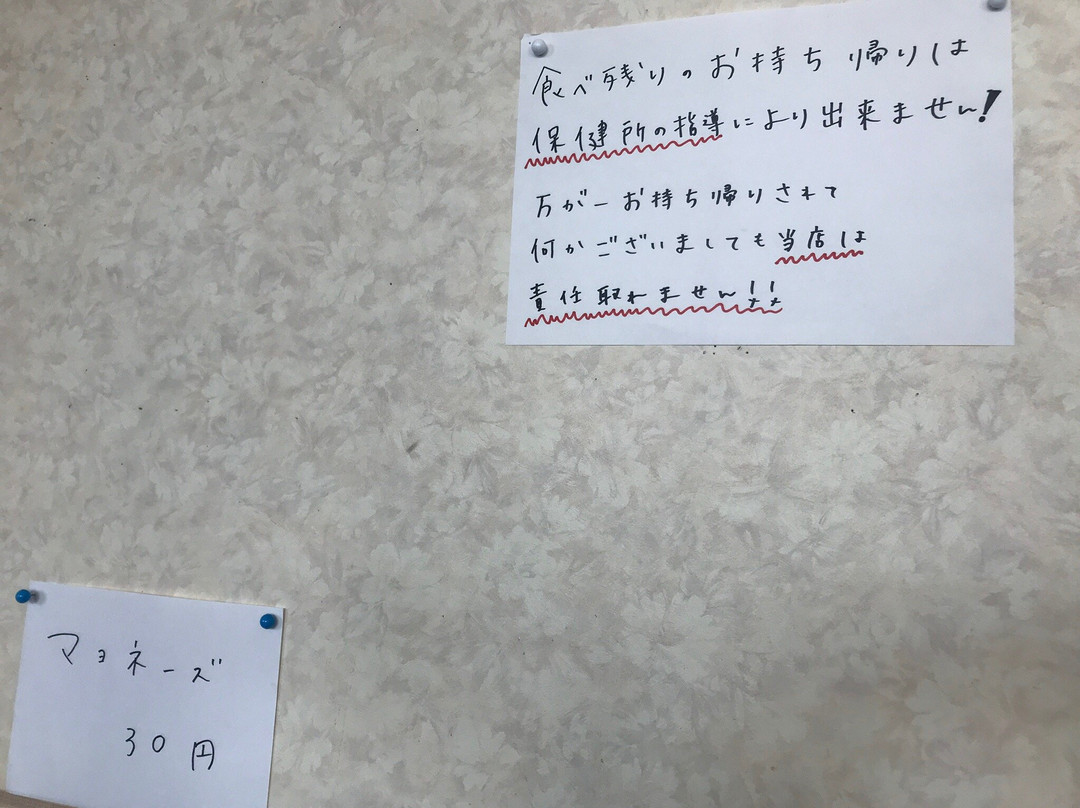 食べ残りのお持ち帰りは
保健所の指導により出来ません!
万が一お持ち帰りされて
何かございましても当店は
責任取れません!!
マヨネーズ
30円